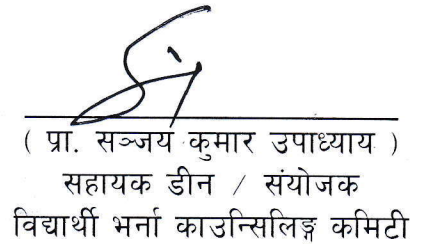 ( प्रा. सञ्जय कुमार उपाध्याय )
सहायक डीन / संयोजक
विद्यार्थी भर्ना काउन्सिलिङ्ग कमिटी